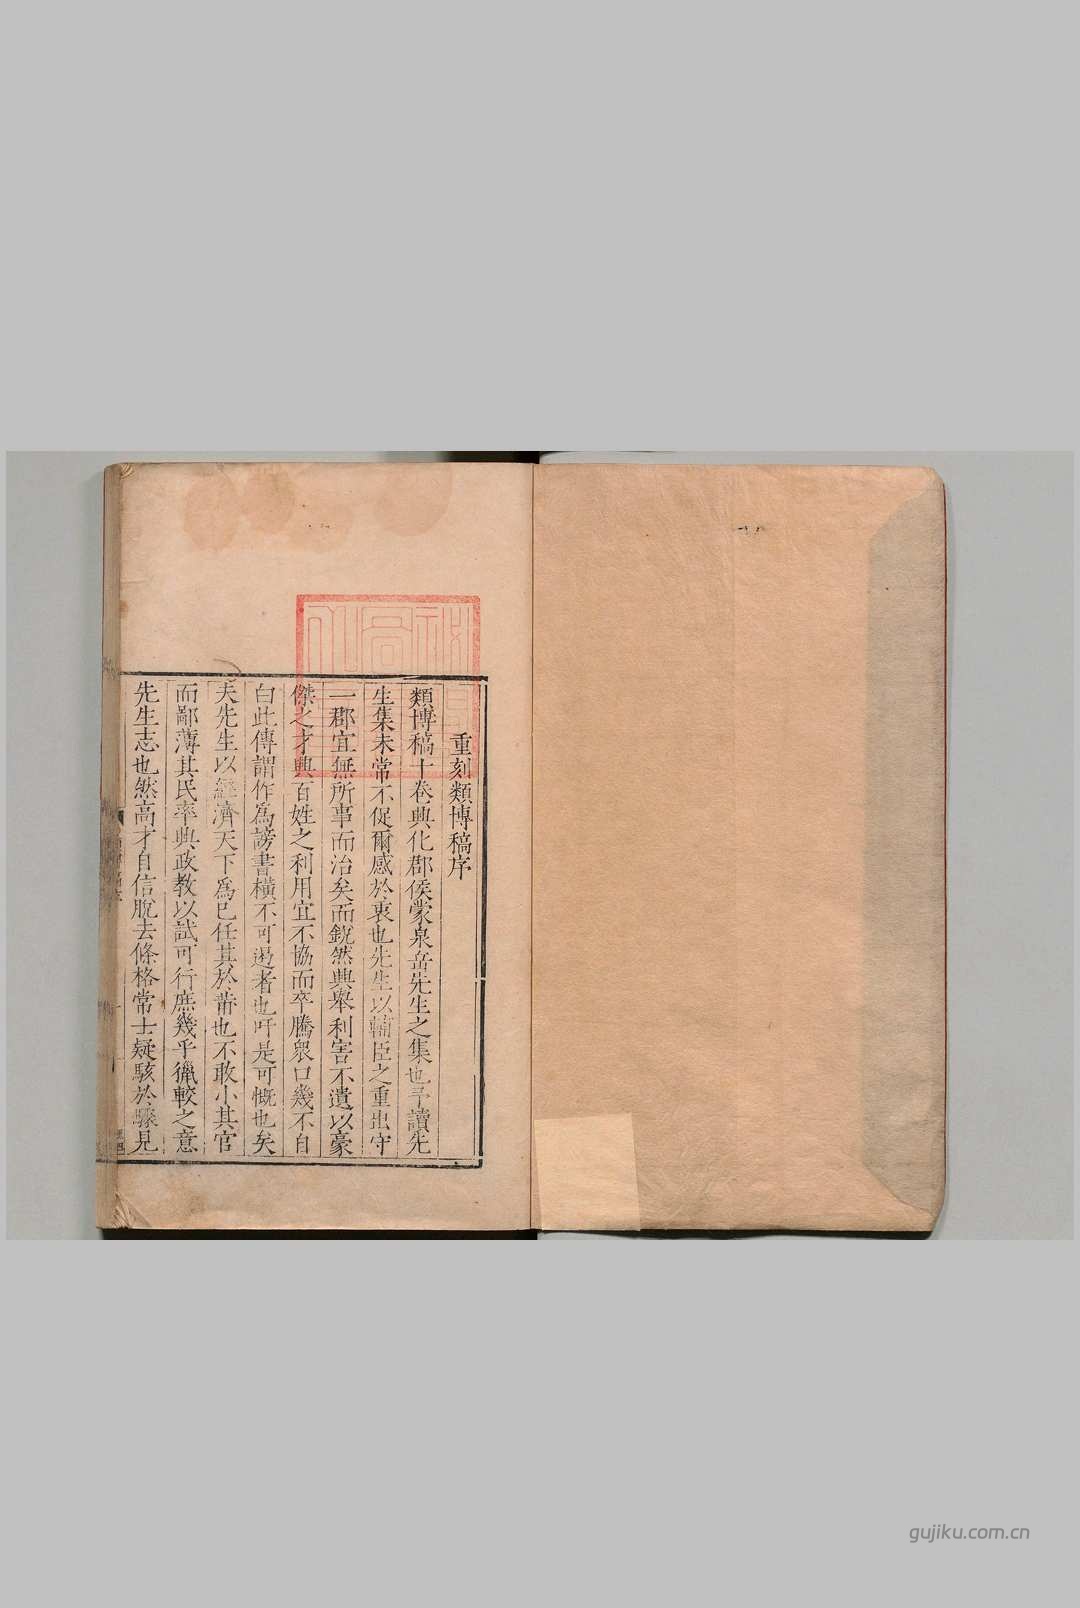 重刻類博稿序
類博稿十卷興化郡侯蒙泉岳先生之集也予讀先
生集未常不促爾感於衷也先生以輔臣之重出守
一郡宜無所事而治矣而銳然興舉利害不遺以豪
傑之才興百姓之利用宜不協而卒騰眾口幾不自
白此傳謂作為謗書橫不可遏者也吁是可慨也矣
夫先生以經濟天下為己任其於莆也不敢小其官
而鄙薄其民率興政教以試可行庶幾乎獵較之意
先生志也然高才自信脫去條格常士疑駭於驟見
gujiku.com.cn